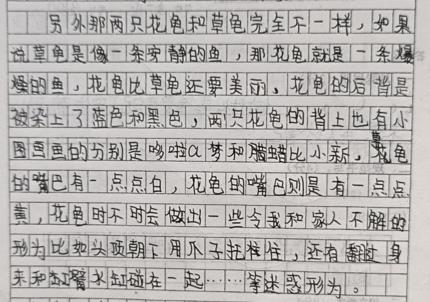 另外那两只花龟和草龟完全不一样，如果
说草龟是像一条安静的鱼，那花龟就是一条爆
燥的鱼，花龟比草龟还要美丽，花龟的后背是
被染上了蓝色和黑色，两只花龟的背上也有小
图画画的分别是哆啦a梦和腊蜡比小新，草龟
的嘴巴有一点点白，花龟的嘴巴则是有一点点
黄，花龟时不时会做出一些令我和家人不解的
形为比如头顶朝下用爪子托住，还有翻过身
来和缸臂水缸碰在一起……等迷惑形为。